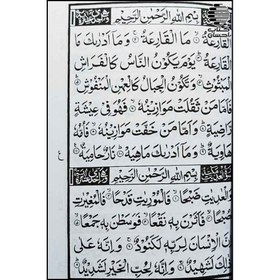 بِسْمِ اللهِ الرَّحْمٰنِ الرَّحِيْمِ
اَلْقَارِعَةُ ۝ مَا الْقَارِعَةُ ۝ وَمَاۤ اَدْرٰىكَ مَا
الْقَارِعَةُ ۝ يَوْمَ يَكُوْنُ النَّاسُ كَالْفَرَاشِ
الْمَبْثُوْثِ ۝ وَتَكُوْنُ الْجِبَالُ كَالْعِهْنِ الْمَنْفُوْشِ ۝
فَاَمَّا مَنْ ثَقُلَتْ مَوَازِيْنُهٗ ۝ فَهُوَ فِيْ عِيْشَةٍ
رَّاضِيَةٍ ۝ وَاَمَّا مَنْ خَفَّتْ مَوَازِيْنُهٗ ۝ فَاُمُّهٗ
هَاوِيَةٌ ۝ وَمَاۤ اَدْرٰىكَ مَاهِيَهْ ۝ نَارٌ حَامِيَةٌ ۝
ع
بِسْمِ اللهِ الرَّحْمٰنِ الرَّحِيْمِ
وَالْعٰدِيٰتِ ضَبْحًا ۝ فَالْمُوْرِيٰتِ قَدْحًا ۝ فَالْمُغِيْرٰتِ
صُبْحًا ۝ فَاَثَرْنَ بِهٖ نَقْعًا ۝ فَوَسَطْنَ بِهٖ جَمْعًا ۝
اِنَّ الْاِنْسَانَ لِرَبِّهٖ لَكَنُوْدٌ ۝ وَاِنَّهٗ عَلٰى
ذٰلِكَ لَشَهِيْدٌ ۝ وَاِنَّهٗ لِحُبِّ الْخَيْرِ لَشَدِيْدٌ ۝